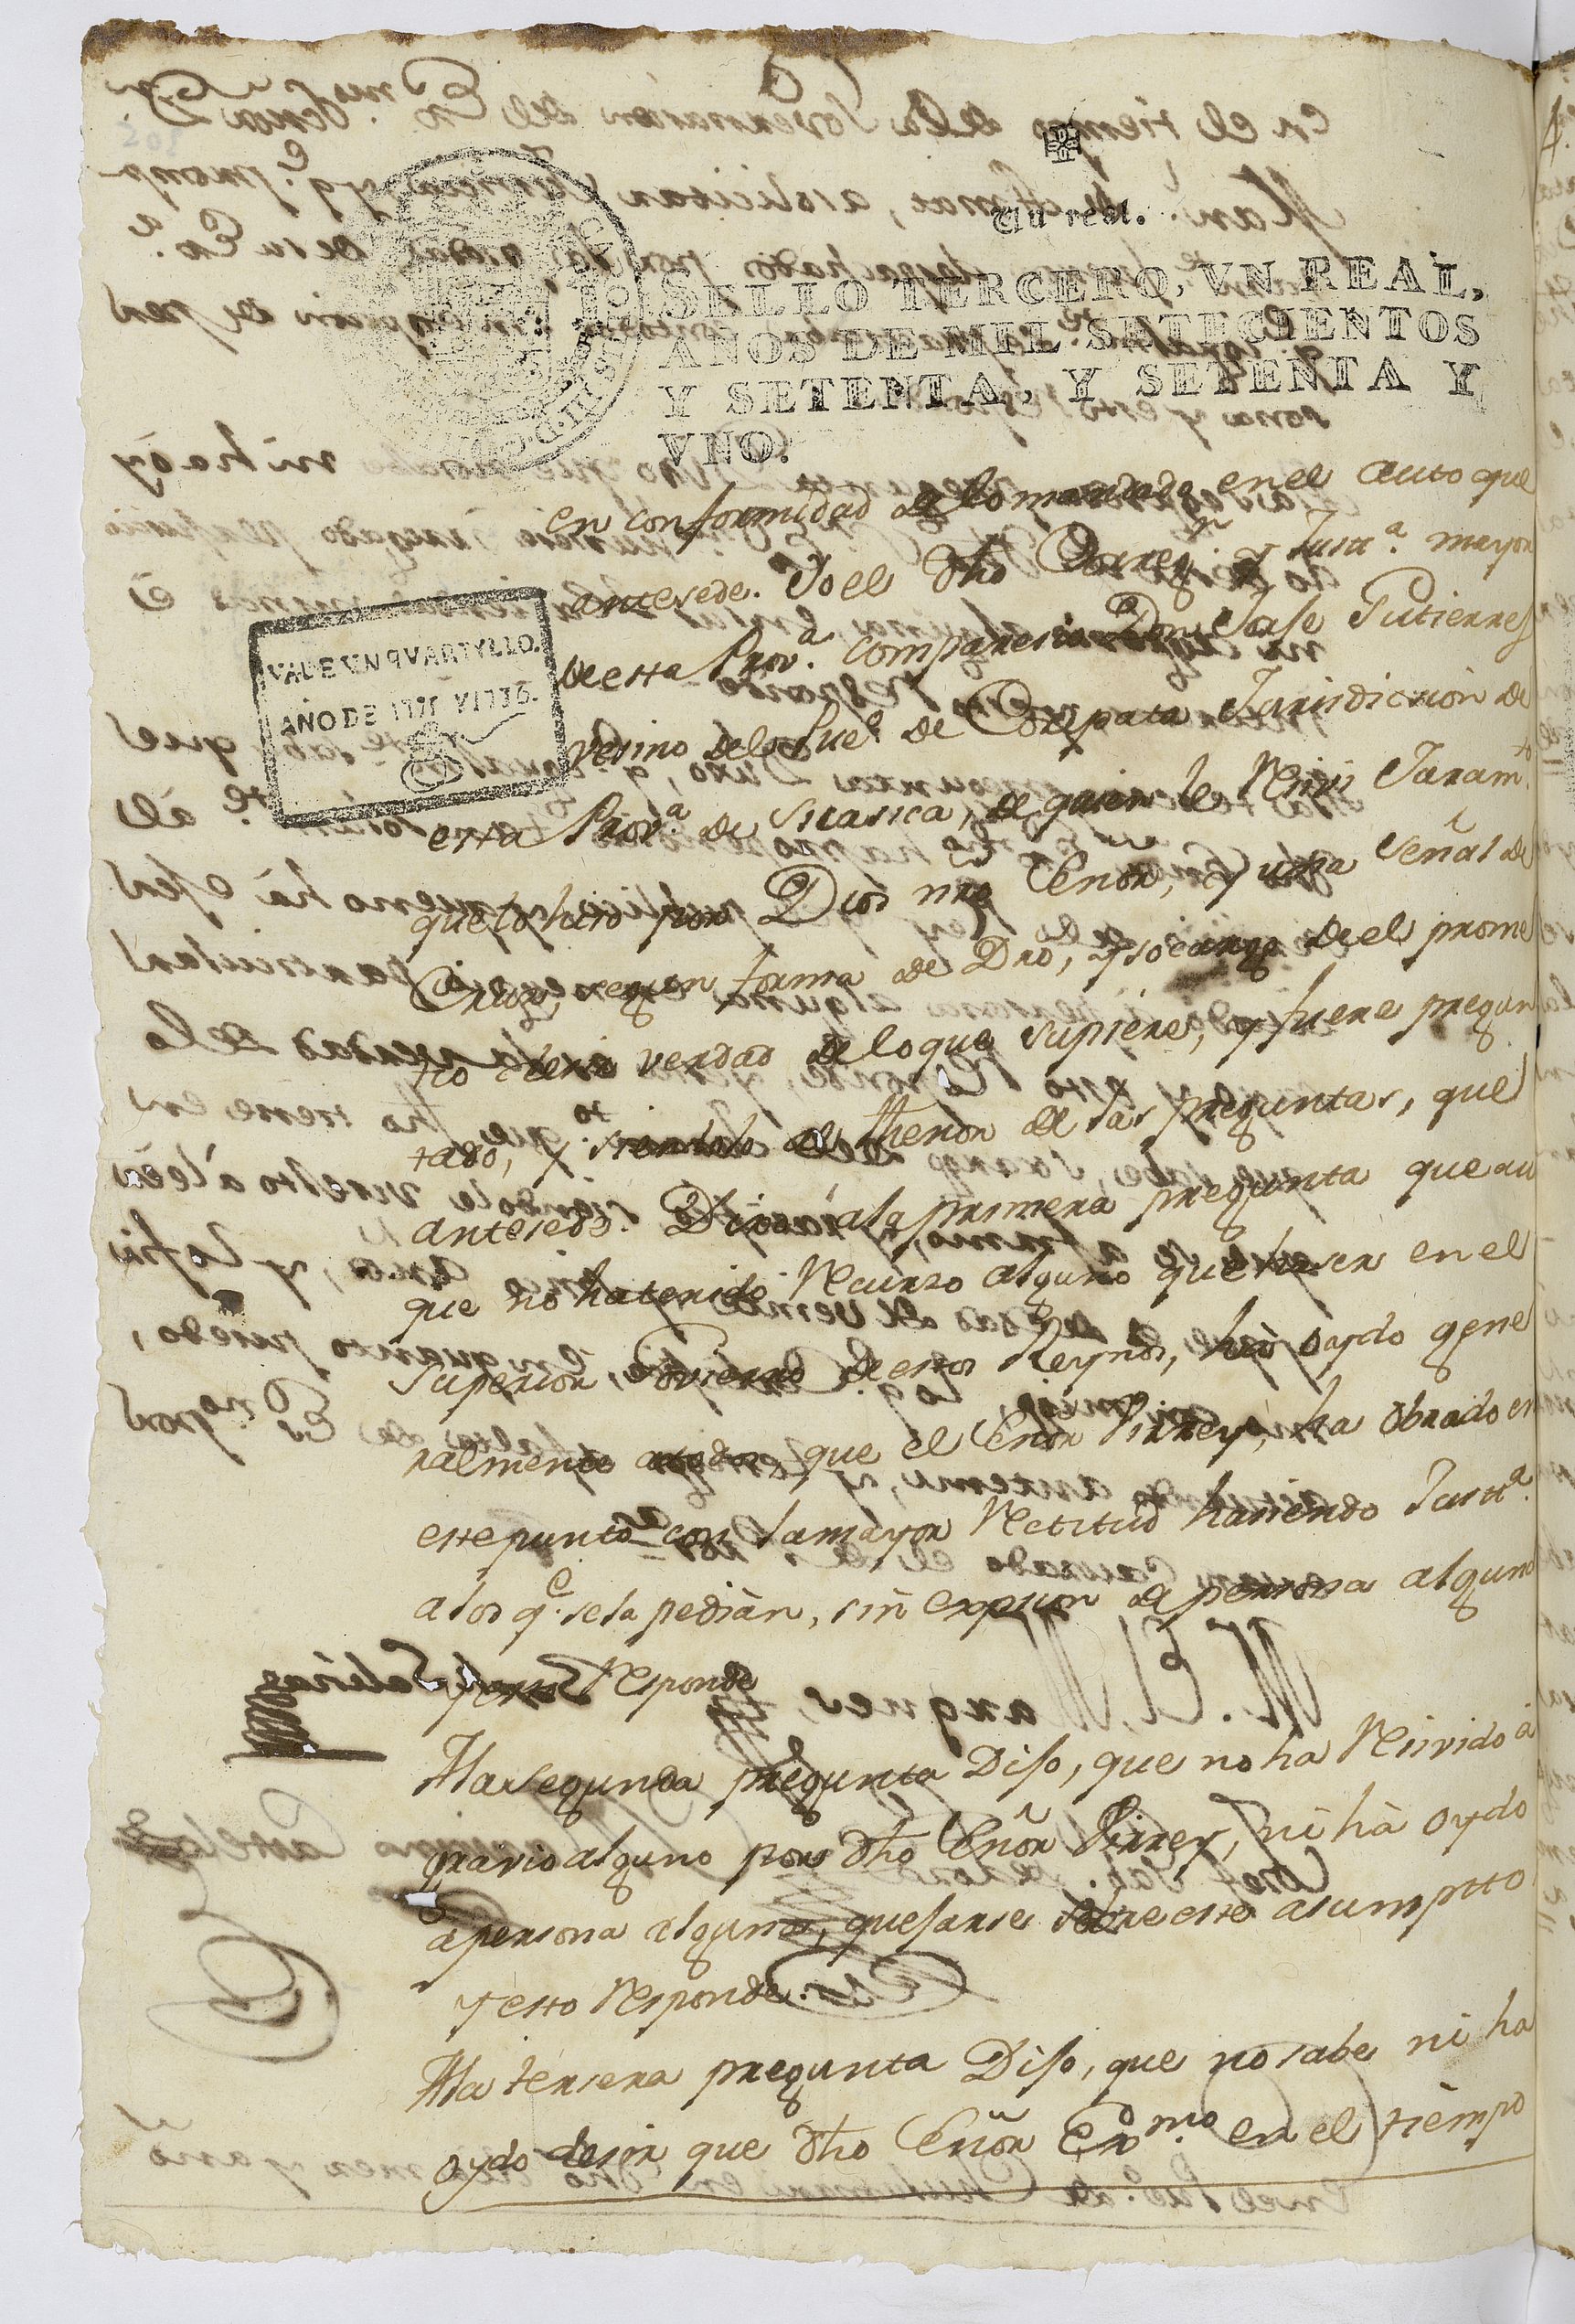 Un real.
SELLO TERCERO, VN REAL,
AÑOS DE MIL SETECIENTOS
Y SETENTA, Y SETENTA Y
VNO.
VALE UN QVARTYLLO.
AÑO DE 1775 Y 1776.
en conformidad de lo mandado en el auto que
antesede. Yo el dho Correg.r y Justt.a mayor
de esta Prov.a comparesio Don Jose Gutierres
vesino del Pue.o de Coripata Jurisdiccion de
esta Prov.a de Sicasica, de quien le Resivi Juram.to
que lo hiso por Dios nro Señor, y una Señal de
Cruz, segun forma de Dro, y so cargo de el prome
tio desir verdad de lo que supiere, y fuere pregun
tado, y siendolo al thenor de las preguntas, que
antesede. Dixo a la primera pregunta que au
que no ha tenido Recurzo alguno que haser en el
Superior Govierno de estos Reynos, há oydo gene
ralmente a todos, que el Señor Virrey, ha obrado en
este punto con la mayor Rectitud hasiendo Justt.a
a los q.e se la pedian, sin de persona alguna
Responde
A la segunda pregunta Diso, que no ha Resivido a
gravio alguno por dho Señor Virrey, ni há oydo
a persona alguna, quesarse sobre este asumptto
y esto Responde.
A la tersera pregunta Diso, que no sabe ni ha
oydo desir que dho Señor Exmo en el tiempo